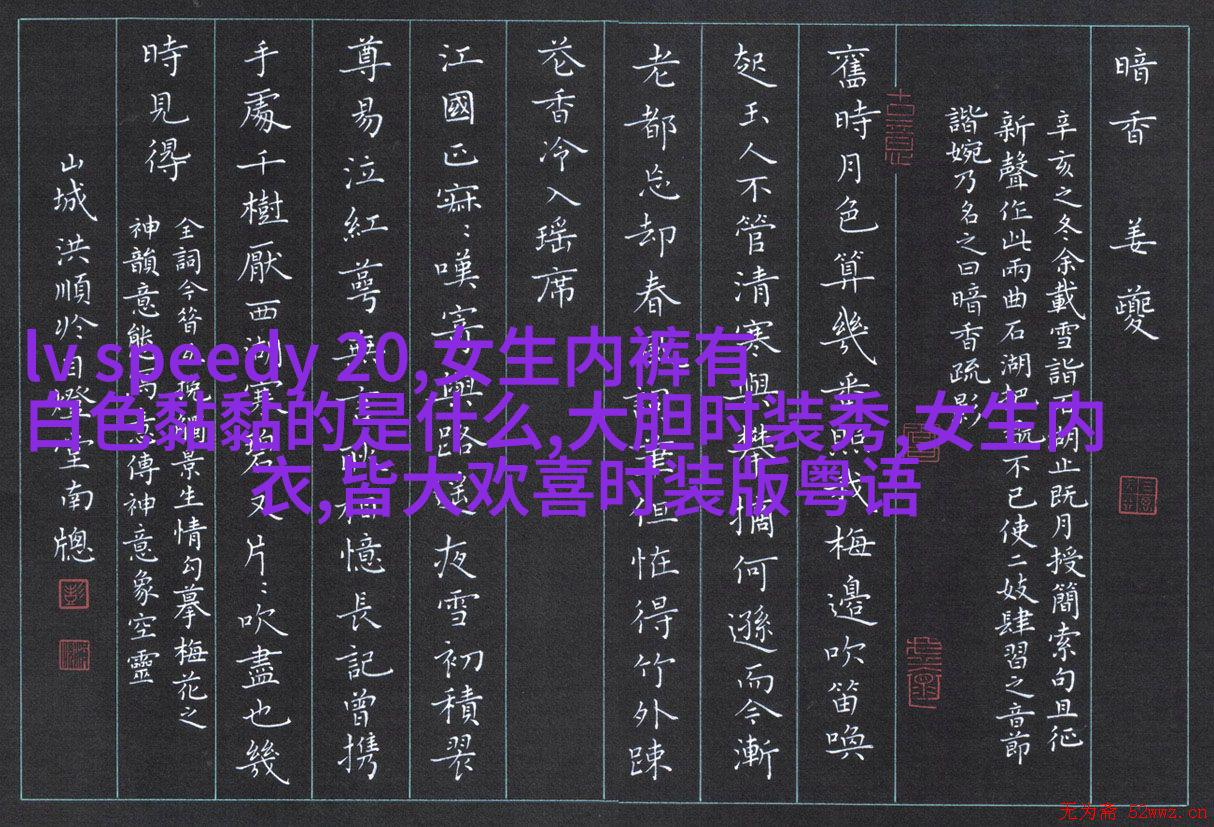 暗香　姜夔
辛亥之冬余載雪詣石湖止既月授簡索句且征
新聲作此兩曲石湖把玩不已使二妓肆習之音節
諧婉乃名之曰暗香疏影
舊時月色算幾番照我梅邊吹笛喚
起玉人不管清寒與攀摘何遜而今漸
老都忘却春風詞筆但怪得竹外疎
花香冷入瑶席
江國正寂：嘆寄與路遥夜雪初積翠
尊易泣紅萼無言耿相憶長記曾携
手處千樹厭西湖寒碧又片：吹盡也幾
時見得
全詞今昔 挽 景生情勾摹梅花之
神韻意態 傳神意象空靈
山城洪順 自燈堂南牕
古意
lv speedy 20,女生内裤有
白色黏黏的是什么,大胆时装秀,女生内
衣,皆大欢喜时装版粤语
无为斋 52wwz.cn